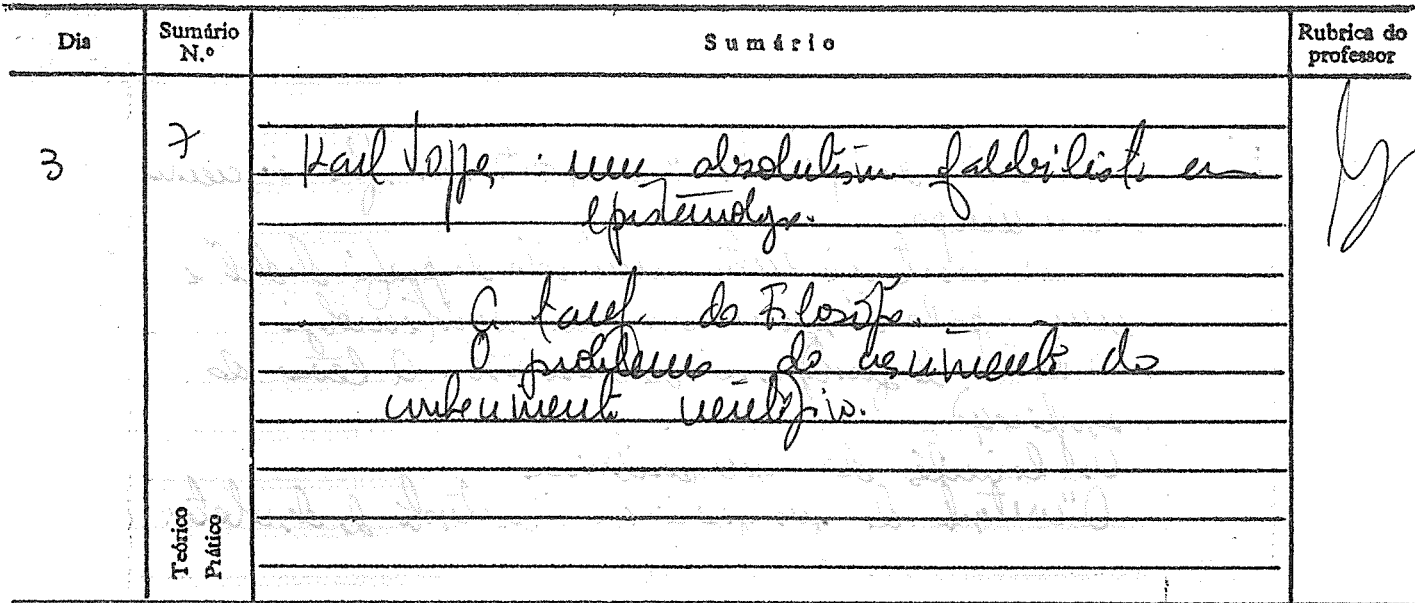 Dia
Sumário N.º
Sumário
Rubrica do professor
3
7
Karl Popper: um absolutismo falibilista em
epistemologia.
A tarefa da Filosofia.
O problema do crescimento do
conhecimento científico.
Teórico
Prático